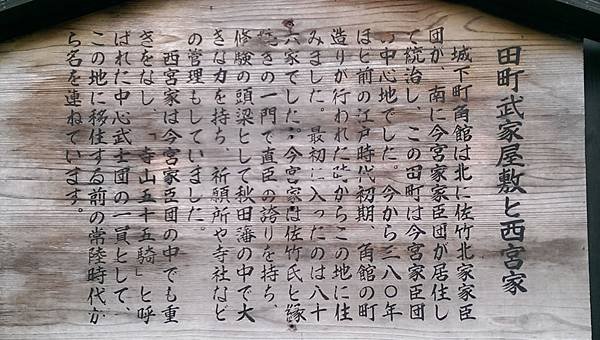 田町武家屋敷と西宮家
城下町角館は北に佐竹北家家臣
団が、南に今宮家家臣団が居住し
て統治し、この田町は今宮家臣団
の中心地でした。今から三八〇年
ほど前の江戸時代初期、角館の町
造りが行われた時からこの地に住
みました。最初に入ったのは八十
六家でした。今宮家は佐竹氏と縁
続きの一門で直臣の誇りを持ち、
修験の頭梁として秋田藩の中で大
きな力を持ち、祈願所や寺社など
の管理もしていました。
西宮家は今宮家臣団の中でも重
きをなし、「寺山五十五騎」と呼
ばれた中心武士団の一員として、
この地に移住する前の常陸時代か
ら名を連ねています。